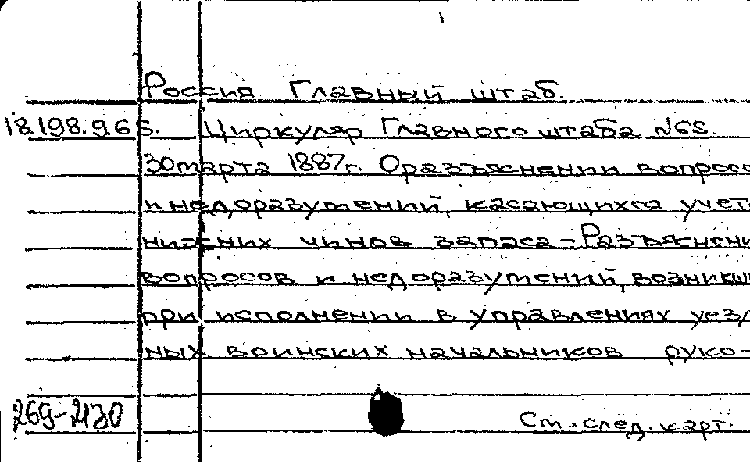 Россия Главный штаб.
18.198.9.65. Циркуляр Главного штаба №68.
30 марта 1887г. О разъяснении вопросо
и недоразумений, касающихся учет
нижних чинов запаса - Разъяснени
вопросов и недоразумений, возникш
при исполнении в управлениях уезд
ных воинских начальников руко-
269-2130
См. след. карт.